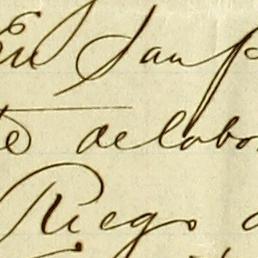 En San
te delabo
Riego